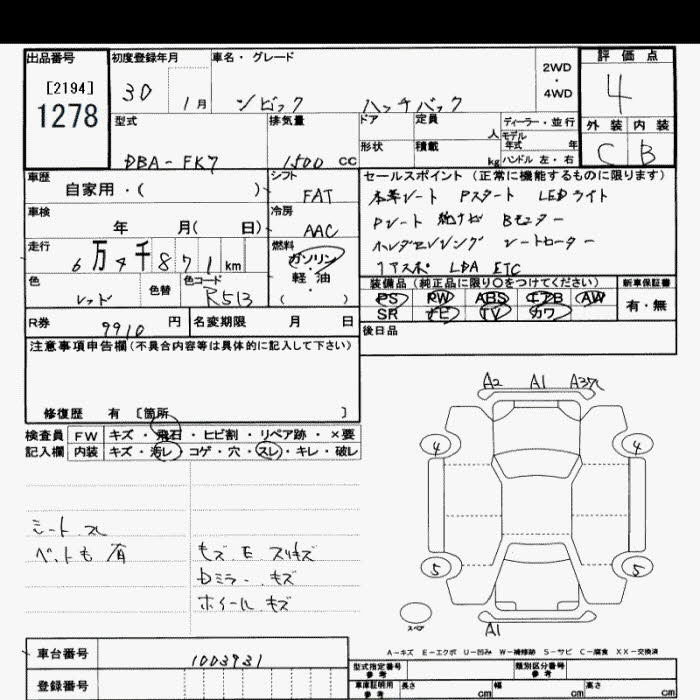 出品番号 初度登録年月 車名・グレード 2WD・4WD 評価点
[2194]
1278
30 1月 シビック ハッチバック 4
型式 排気量 ドア 定員 人 ディーラー・並行 外装 内装
モデル年式 年
形状 積載 kg ハンドル 左・右
DBA-FK7 1500 CC C B
車歴 シフト セールスポイント (正常に機能するものに限ります)
自家用・( ) FAT 本革シート Pスタート LEDライト
車検 冷房 Pシート 純ナビ Bモニター
年 月( 日) AAC シートヒーター
走行 燃料
6万4千871km ガソリン・軽油・( ) LDA ETC
色 色替 色コード 装備品(純正品に限り○をつけてください) 新車保証書
レッド R513 PS PW ABS エアB AW 有・無
SR ナビ TV カワ
R券 9910 円 名変期限 月 日 後日品
注意事項申告欄(不具合内容等は具体的に記入して下さい)
修復歴 有 〔箇所 〕
検査員 FW キズ・飛石・ヒビ割・リペア跡・×要
記入欄 内装 キズ・汚レ・コゲ・穴・スレ・キレ・破レ
A2 A1
4 4
シートスレ
ペットも有
キズ、E スリキズ
Dミラー、キズ
ホイールキズ
5 5
スペア
A1
A-キズ E-エクボ U-凹み W-補修跡 S-サビ C-腐食 XX-交換済
車台番号 1003931
型式指定番号 参考 類別区分番号 参考
登録番号
車庫証明用 参考 長さ cm 幅 cm 高さ cm